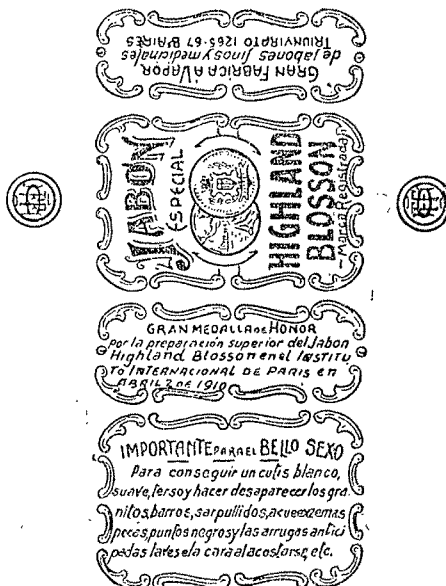 GRAN FABRICA Á VAPOR
de jabones finos y medicinales
TRIUNVIRATO 1265-67 Bs AIRES
JABON
ESPECIAL
HIGHLAND
BLOSSON
—Marca Registrada—
GRAN MEDALLA DE HONOR
por la preparación superior del Jabon
Highland Blosson en el INSTITU
TO INTERNACIONAL DE PARIS en
ABRIL 2 DE 1910
IMPORTANTE PARA EL BELLO SEXO
Para conseguir un cutis blanco,
suave, terso y hacer desaparecer los gra
nitos, barros, sarpullidos, acue exemas
pecas, puntos negros y las arrugas antici
padas lavese la cara al acostarse, etc.